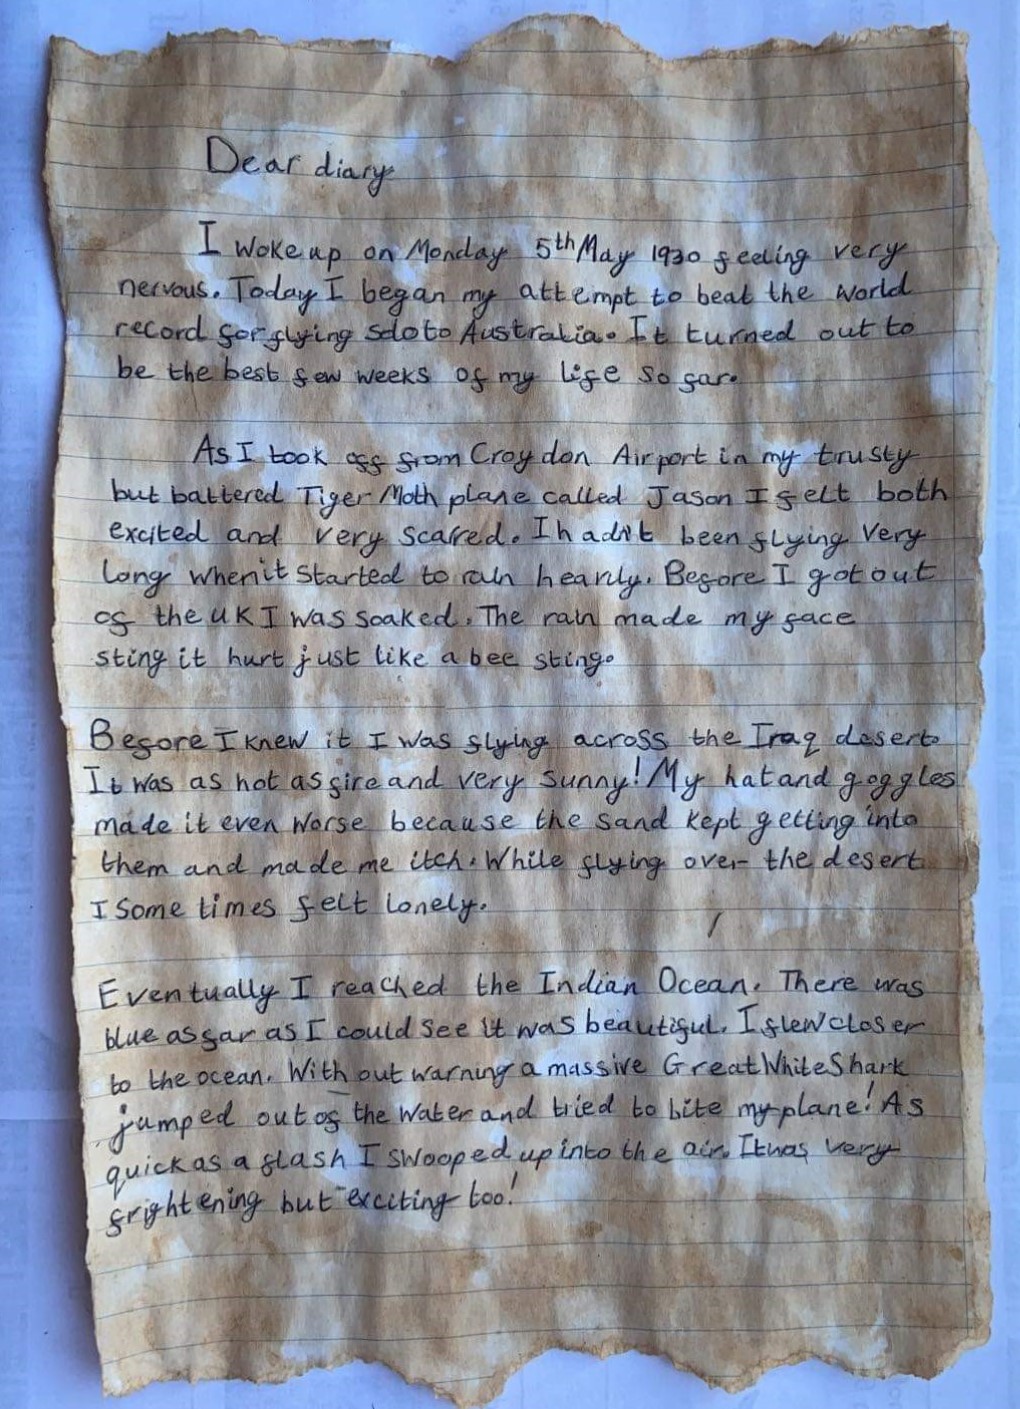 Dear diary
I woke up on Monday 5th May 1930 feeling very
nervous. Today I began my attempt to beat the world
record for flying solo to Australia. It turned out to
be the best few weeks of my life so far.
As I took off from Croydon Airport in my trusty
but battered Tiger Moth plane called Jason I felt both
excited and very scared. I hadn't been flying very
long when it started to rain heavily. Before I got out
of the UK I was soaked. The rain made my face
sting it hurt just like a bee sting.
Before I knew it I was flying across the Iraq desert.
It was as hot as fire and very sunny! My hat and goggles
made it even worse because the sand kept getting into
them and made me itch. While flying over the desert
I some times felt lonely.
Eventually I reached the Indian Ocean. There was
blue as far as I could see it was beautiful. I flew closer
to the ocean. With out warning a massive Great White Shark
jumped out of the water and tried to bite my plane! As
quick as a flash I swooped up into the air. It was very
frightening but exciting too!